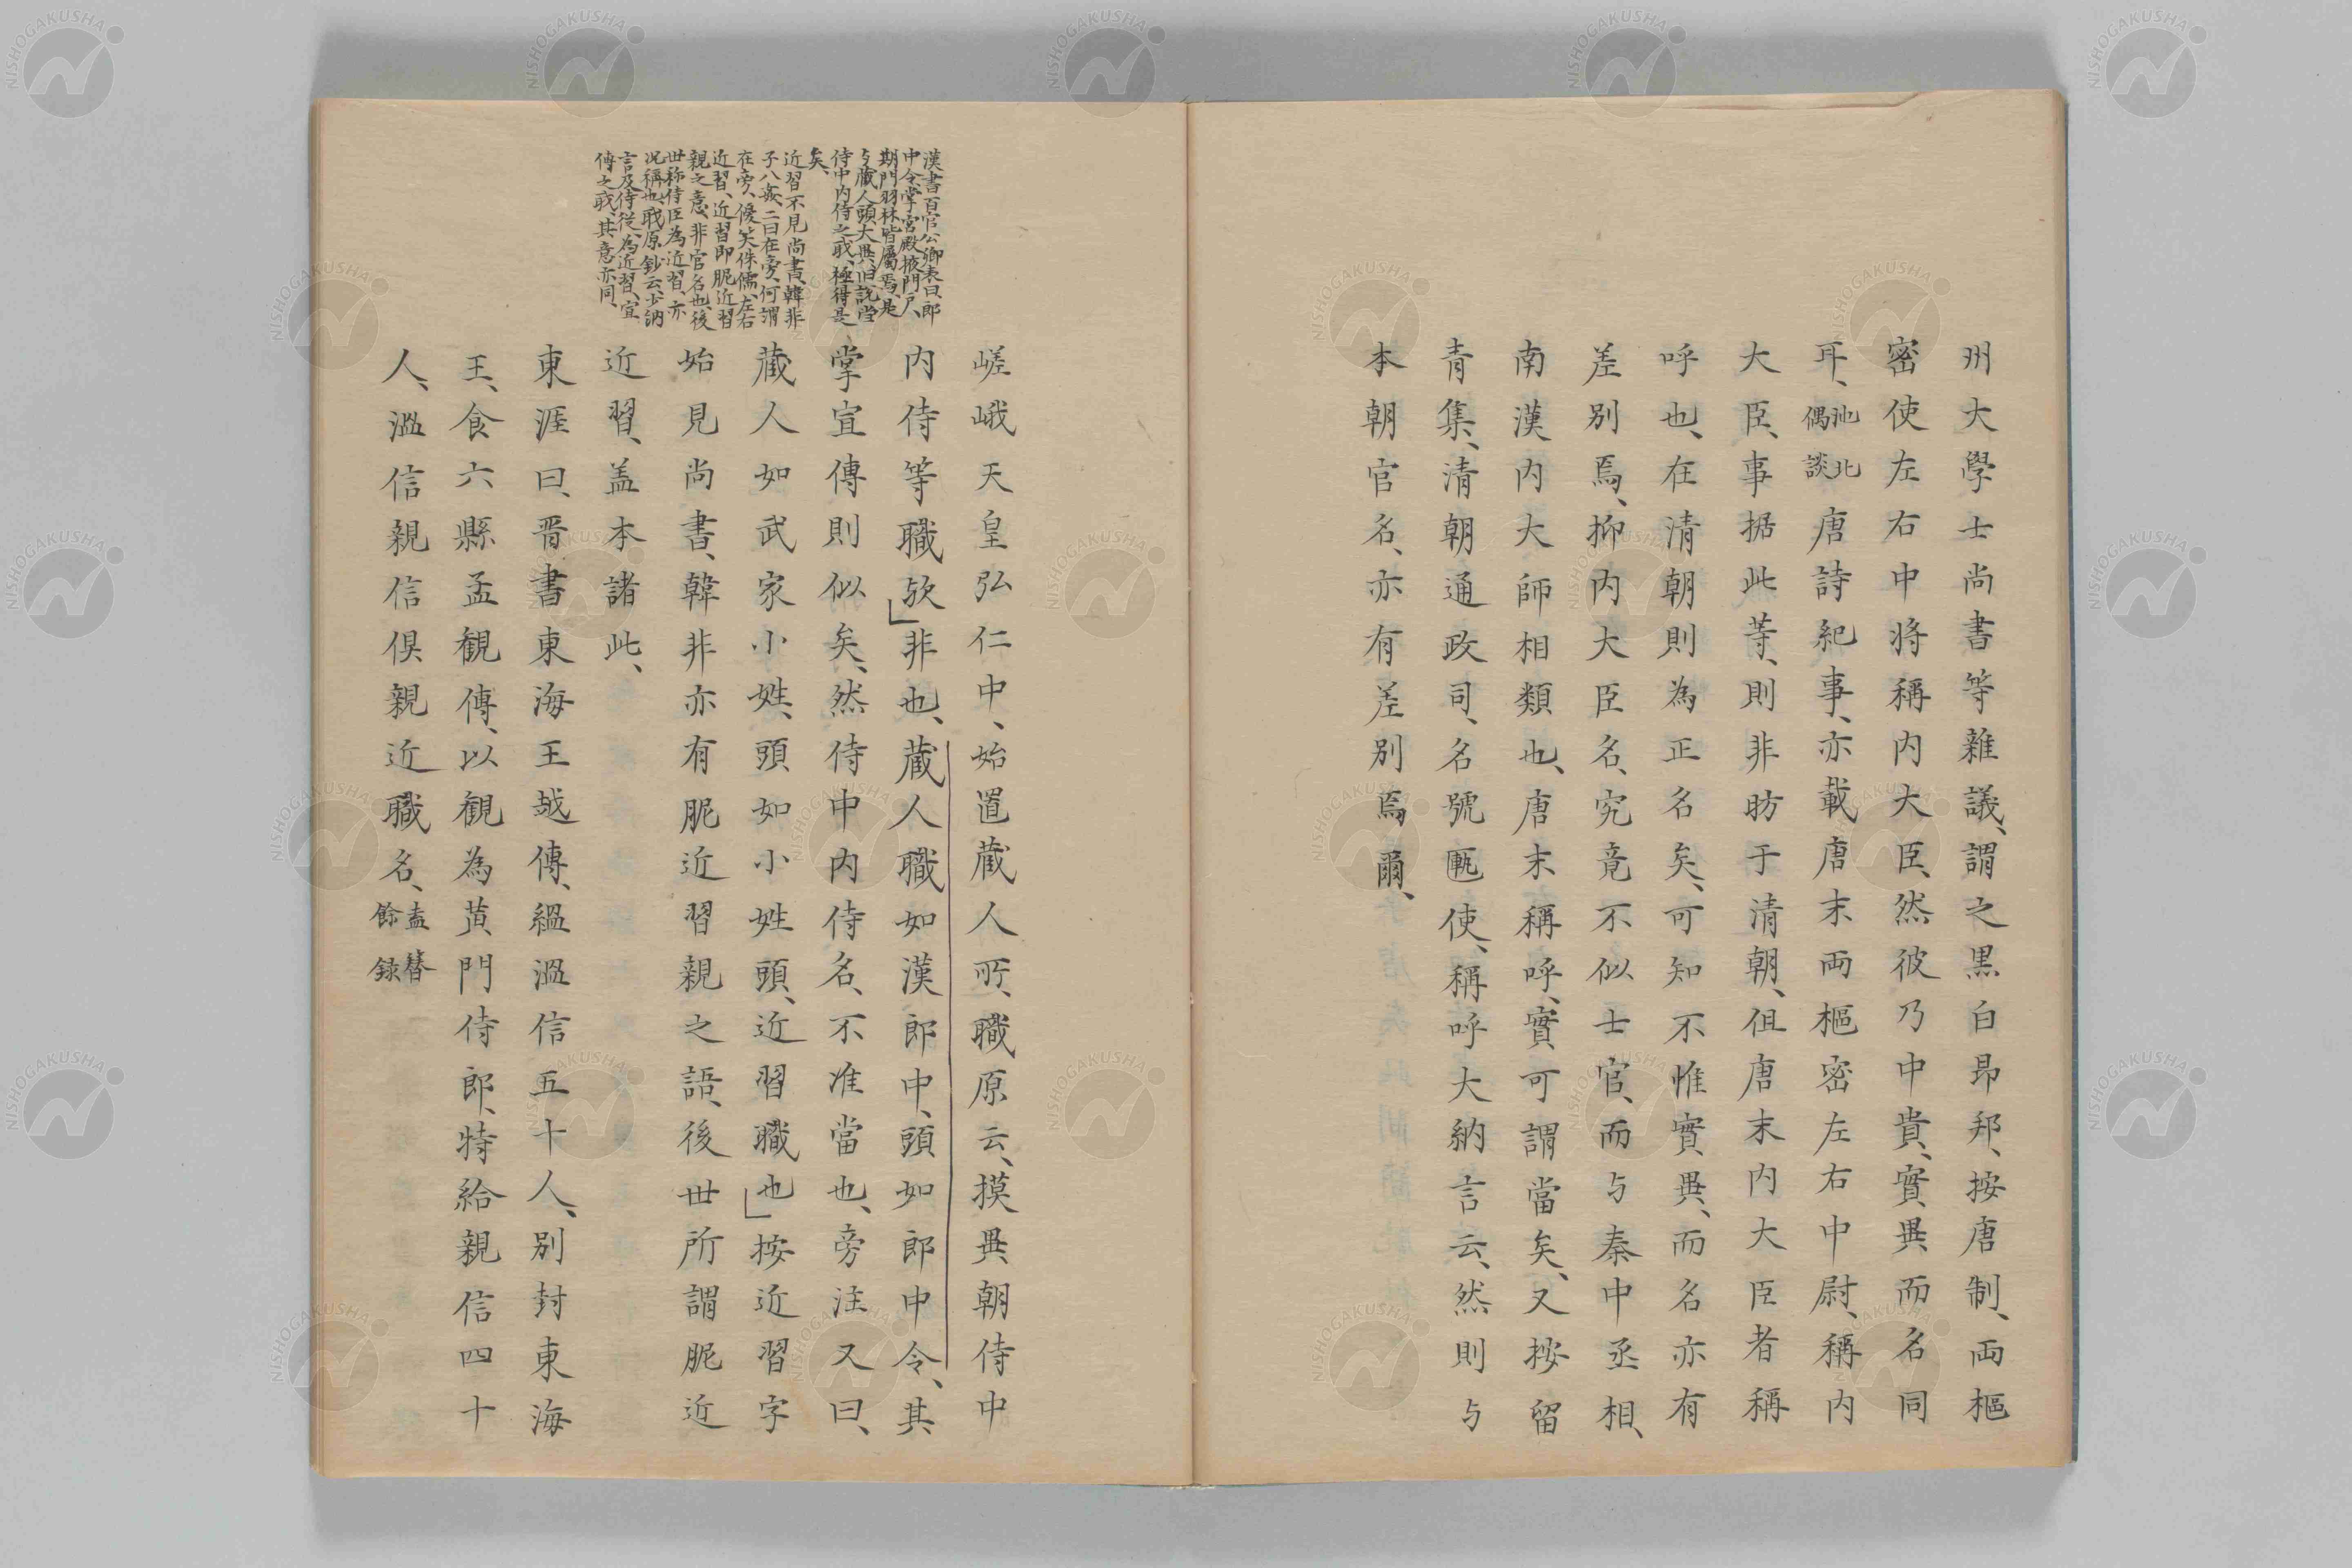 州大學士尚書等雜議、謂之黒白昂邦、按唐制、両樞
密使左右中将稱内大臣、然彼乃中貴、實異而名同
耳、池北偶談唐詩紀事、亦載唐末両樞密左右中尉、稱内
大臣、事拠此等、則非昉于清朝、但唐末内大臣者稱
呼也、在清朝則為正名矣、可知不惟實異、而名亦有
差別焉、抑内大臣名、究竟不似士官、而与秦中丞相、
南漢内大師相類也、唐末稱呼、實可謂當矣、又按留
青集、清朝通政司、名號匭使、稱呼大納言云、然則与
本朝官名、亦有差別焉爾、
漢書百官公卿表曰、郎
中令掌宮殿掖門戸、
期門羽林皆属焉、是
与蔵人頭大異、旧説當
侍中内侍之職、極得是
矣、
近習不見尚書、韓非
子八姦、二曰在旁、何謂
在旁、優笑侏儒、左右
近習、近習即眤近習
親之意、非官名也、後
世称侍臣為近習、亦
况稱也、職原鈔云、少納
言及侍従、為近習、宣
傳之職、其意亦同、
嵯峨天皇弘仁中、始置蔵人所、職原云、摸異朝侍中
内侍等職欤」非也、蔵人職如漢郎中、頭如郎中令、其
掌宣傳則似矣、然侍中内侍名、不准當也、旁注又曰、
蔵人如武家小姓、頭如小姓頭、近習職也」按近習字
始見尚書、韓非亦有眤近習親之語、後世所謂眤近
近習、盖本諸此、
東涯曰、晋書東海王越傳、緼溫信五十人、別封東海
王、食六縣孟観傳、以観為黄門侍郎、特給親信四十
人、溫信親信倶親近職名、盍簪餘録